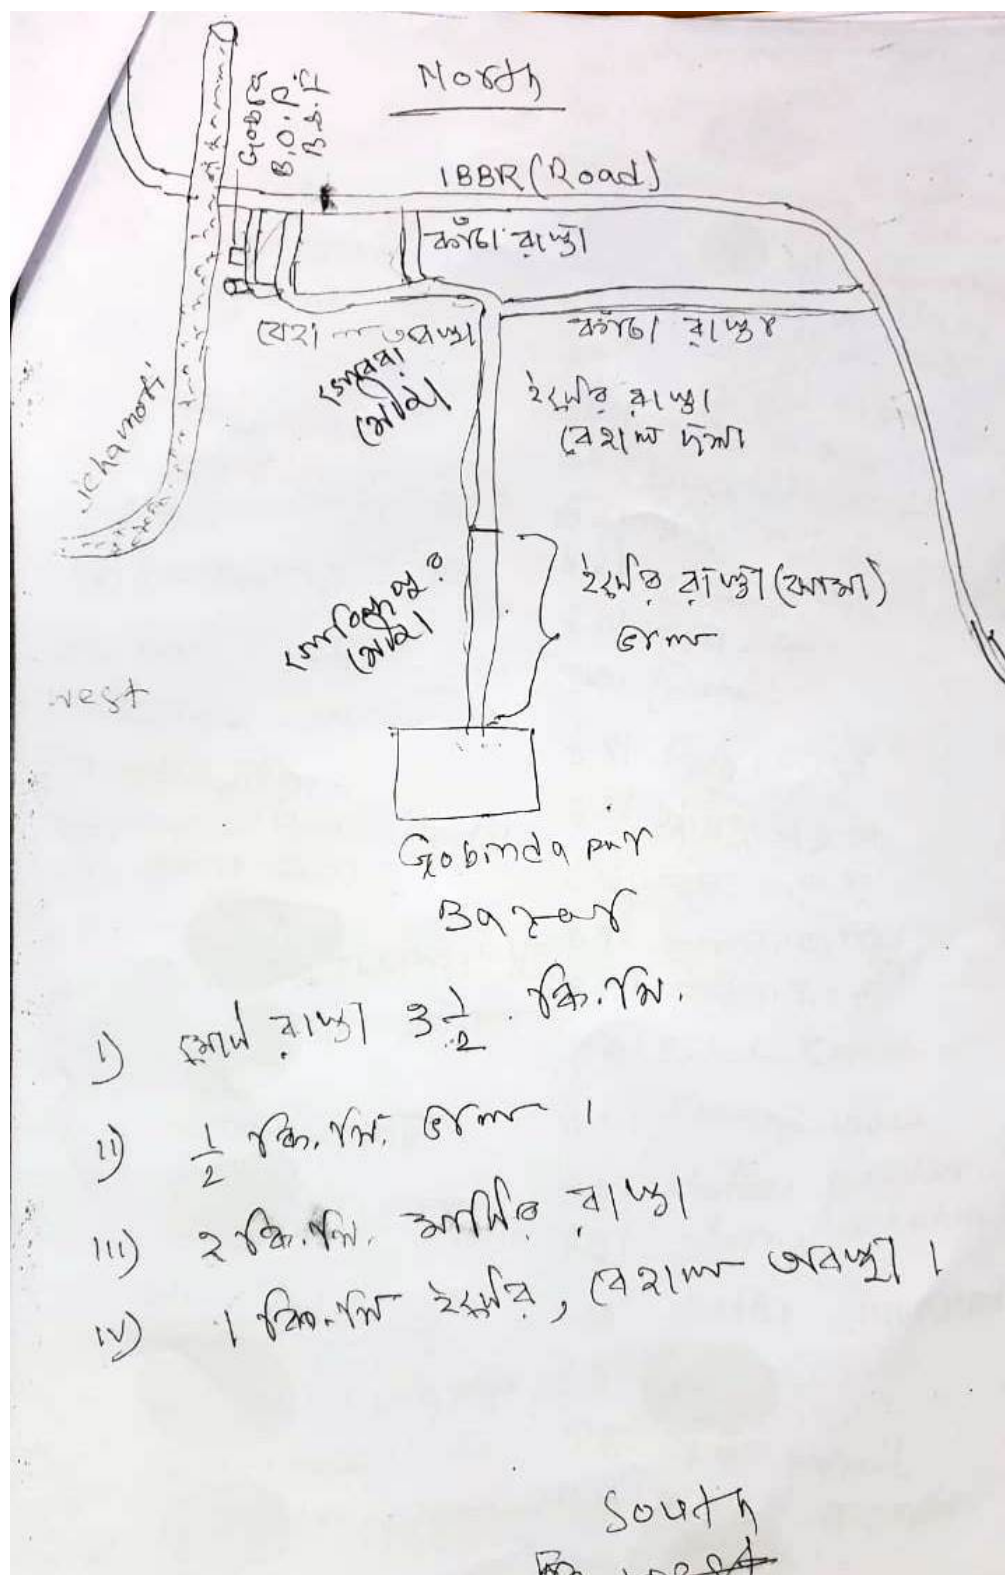 North
Gobra
B.O.P.
B.S.F
IBBR (Road)
কাঁচা রাস্তা
বেহাল অবস্থা
কাঁচা রাস্তা
গোবরা
মৌজা
ইটের রাস্তা
বেহাল দশা
Ichamoti
গোবিন্দপুর
মৌজা
ইটের রাস্তা (ঝামা)
ভাল
west
Gobinda pur
Bazar
i) মোট রাস্তা 3 1/2 . কি.মি.
ii) 1/2 কি.মি. ভাল ।
iii) ২ কি.মি. মাটির রাস্তা
iv) ১ কি.মি ইটের, বেহাল অবস্থা ।
South